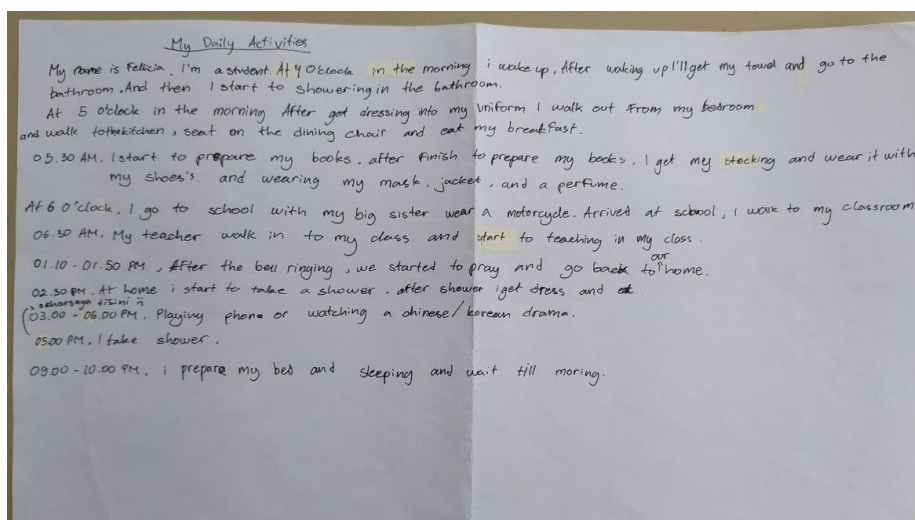 My Daily Activities
My name is Fellicia. I'm a student. At 4 O'clock in the morning i wake up, After waking up I'll get my towel and go to the
bathroom. And then I start to showering in the bathroom.
At 5 o'clock in the morning After get dressing into my uniform I walk out From my bedroom
and walk to the kitchen, seat on the dining chair and eat my breakfast.
05.30 AM. I start to prepare my books. after Finish to prepare my books, I get my stocking and wear it with
my shoes's. and wearing my mask, jacket, and a perfume.
At 6 O'clock. I go to school with my big sister wear a motorcycle. Arrived at school, I walk to my classroom
06.30 AM, My teacher walk in to my class and start to teaching in my class.
01.10 - 01.50 PM, After the bell ringing, we started to pray and go back to our home.
02.30 PM. At home i start to take a shower. after shower i get dress and eat
seharsnya disini
03.00 - 06.00 PM. Playing phone or watching a chinese/korean drama.
05.00 PM. I take shower.
09.00 - 10.00 PM. i prepare my bed and sleeping and wait till moring.